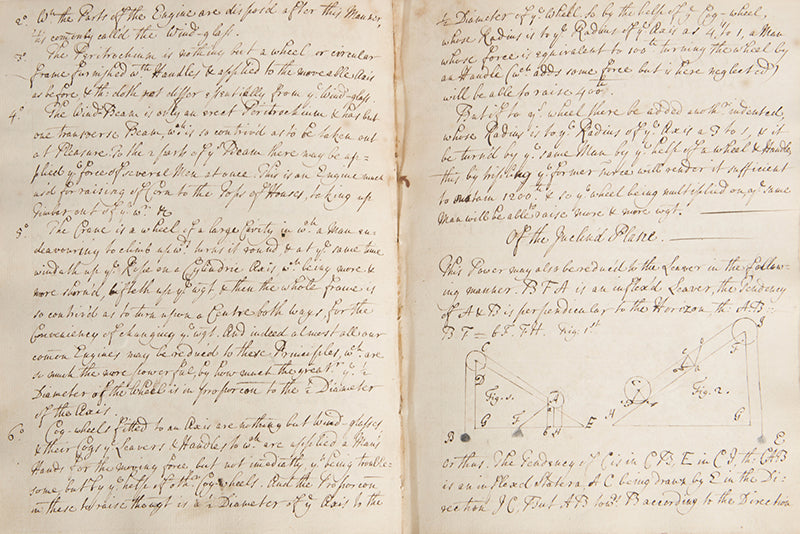 2° Wn the Parts of the Engine are disposd after this Manner,
'tis comonly called the Wind-glass.
3° The Pyritrochium is nothing but a wheel or circular
frame furnished wth Handles & applied to the moveable Axis
as before, & th: doth not differ essentially from ye Wind-glass.
4° The Wind-Beam is only an erect Peritrochium & has but
one transverse Beam, wch is so contrivd as to be taken out
at Pleasure. To the 2 parts of ye Beam there may be ap=
plied ye force of several Men at once. This is an Engine much
usd for raising of Corn to the Tops of Houses, taking up
Timber out of ye wr: &c
5° The Crane is a wheel of a large Cavity in wch a Man en=
deavouring to climb upwds turns it round & at ye same time
windeth up ye Rope on a Cylindric Axis wch being more &
more shortnd, lifteth up ye wgt & then the whole frame is
so contrivd as to turn upon a Centre both ways, for the
Conveniency of changing ye wgt. And indeed almost all our
comon Engines may be reduced to these Principles, wch are
so much the more powerful, by how much the greatr ye ½
Diameter of the Wheel is in proporcon to the ½ Diameter
of the Axis.
6° Cog-wheels fitted to an Axis are nothing but Wind-glasses
& their Cogs ye Leavers & Handles, to wch are applied a Man's
Hands for the moving force, but not imediatly ye being trouble=
some, but by ye help of othr Cog-wheels. And the Proporcon
in these to raise though is a ½ Diameter of ye Axis to the
½ Diameter of ye Wheel, so by the help of ye Cog-wheel,
whose Radius is to ye Radius of ye Axis as 4 to 1, a Man
whose force is equivalent to 100th turning the wheel by
an Handle (wch adds some force but is here neglected)
will be able to raise 400th.
But if to ys wheel there be added anothr indented,
whose Radius is to ye Radius of ye Axis as 3 to 1, & it
be turn'd by ye same Man by ye help of a wheel & Handle,
this by tripling ye former force will render it sufficient
to sustain 1200th & so ye wheel being multiplied on, ye same
Man will be able to raise more & more wgt.
Of the Inclind Plane.
This Power may also be reduced to the Leaver in the follow-
ing manner. B F A is an inflex'd Leaver, the Tendency
of A & B is perpendicular to the Horizon, th: AB:
BF = bF. FH. Fig. 1st
C
D
Fig. 1.
A
B G F b H E
C
Fig. 2.
A
I
F
G E
or thus. The Tendency of C is in CB, E in CI, th: CAB
is an inflexd Statera, AC being drawn by E in the Di=
rection IC, But AB towds B according to the Direction